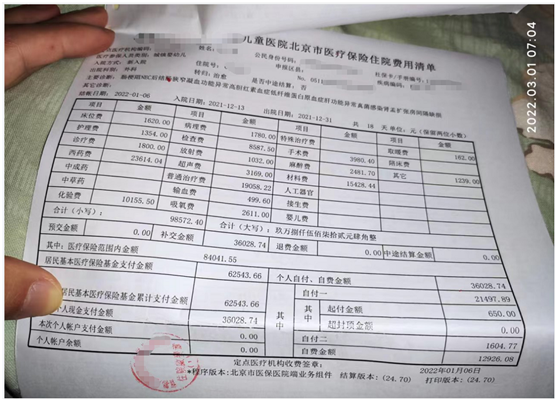 2022.03.01 07:04
儿童医院北京市医疗保险住院费用清单
定点医疗机构编码:
公民身份号码:
医疗参保人员类别:
申报区县:
社保卡/手册编号:
入院方式:
住院号: 0511
出院科别: 外科
转归: 治愈
是否中途结算: 否
疾病编码:
主要诊断:
其它诊断:
结账日期: 2022-01-06 入院日期: 2021-12-13 出院日期: 2021-12-31 共 18 天 单位: 元 (保留两位小数)
项目 金额 项目 金额 项目 金额 项目 金额
床位费 1620.00 病理费 特殊治疗费 取暖费
护理费 1354.00 检查费 1780.00 手术费 3980.40 陪床费 162.00
诊疗费 1800.00 放射费 8587.50 麻醉费 2481.70 其它 1239.00
西药费 23614.04 超声费 1032.00 材料费 15428.44
中成药 普通治疗费 3169.00 人工器官
中草药 输血费 19058.22 接生费
化验费 10155.50 吸氧费 499.60 婴儿费
2611.00
合计 (小写): 98572.40 合计 (大写): 玖万捌仟伍佰柒拾贰元肆角整
预交金额 0.00 补交金额 36028.74 退费金额 0.00 中途结算金额 0.00
其中: 医疗保险范围内金额 84041.55
居民基本医疗保险基金支付金额 62543.66 个人自付、自费金额 36028.74
居民基本医疗保险基金累计支付金额 62543.66 其中 自付一 21497.89
个人现金支付金额 36028.74 其中 起付金额 650.00
超封顶金额 0.00
本次个人帐户支付金额 0.00 自付二 1604.77
个人帐户余额 0.00 自费金额 12926.08
定点医疗机构收费签章: 2022年01月06日
*程序版本: 北京市医保医院端业务组件 结算版本: (24.70) 打印版本: (24.70)